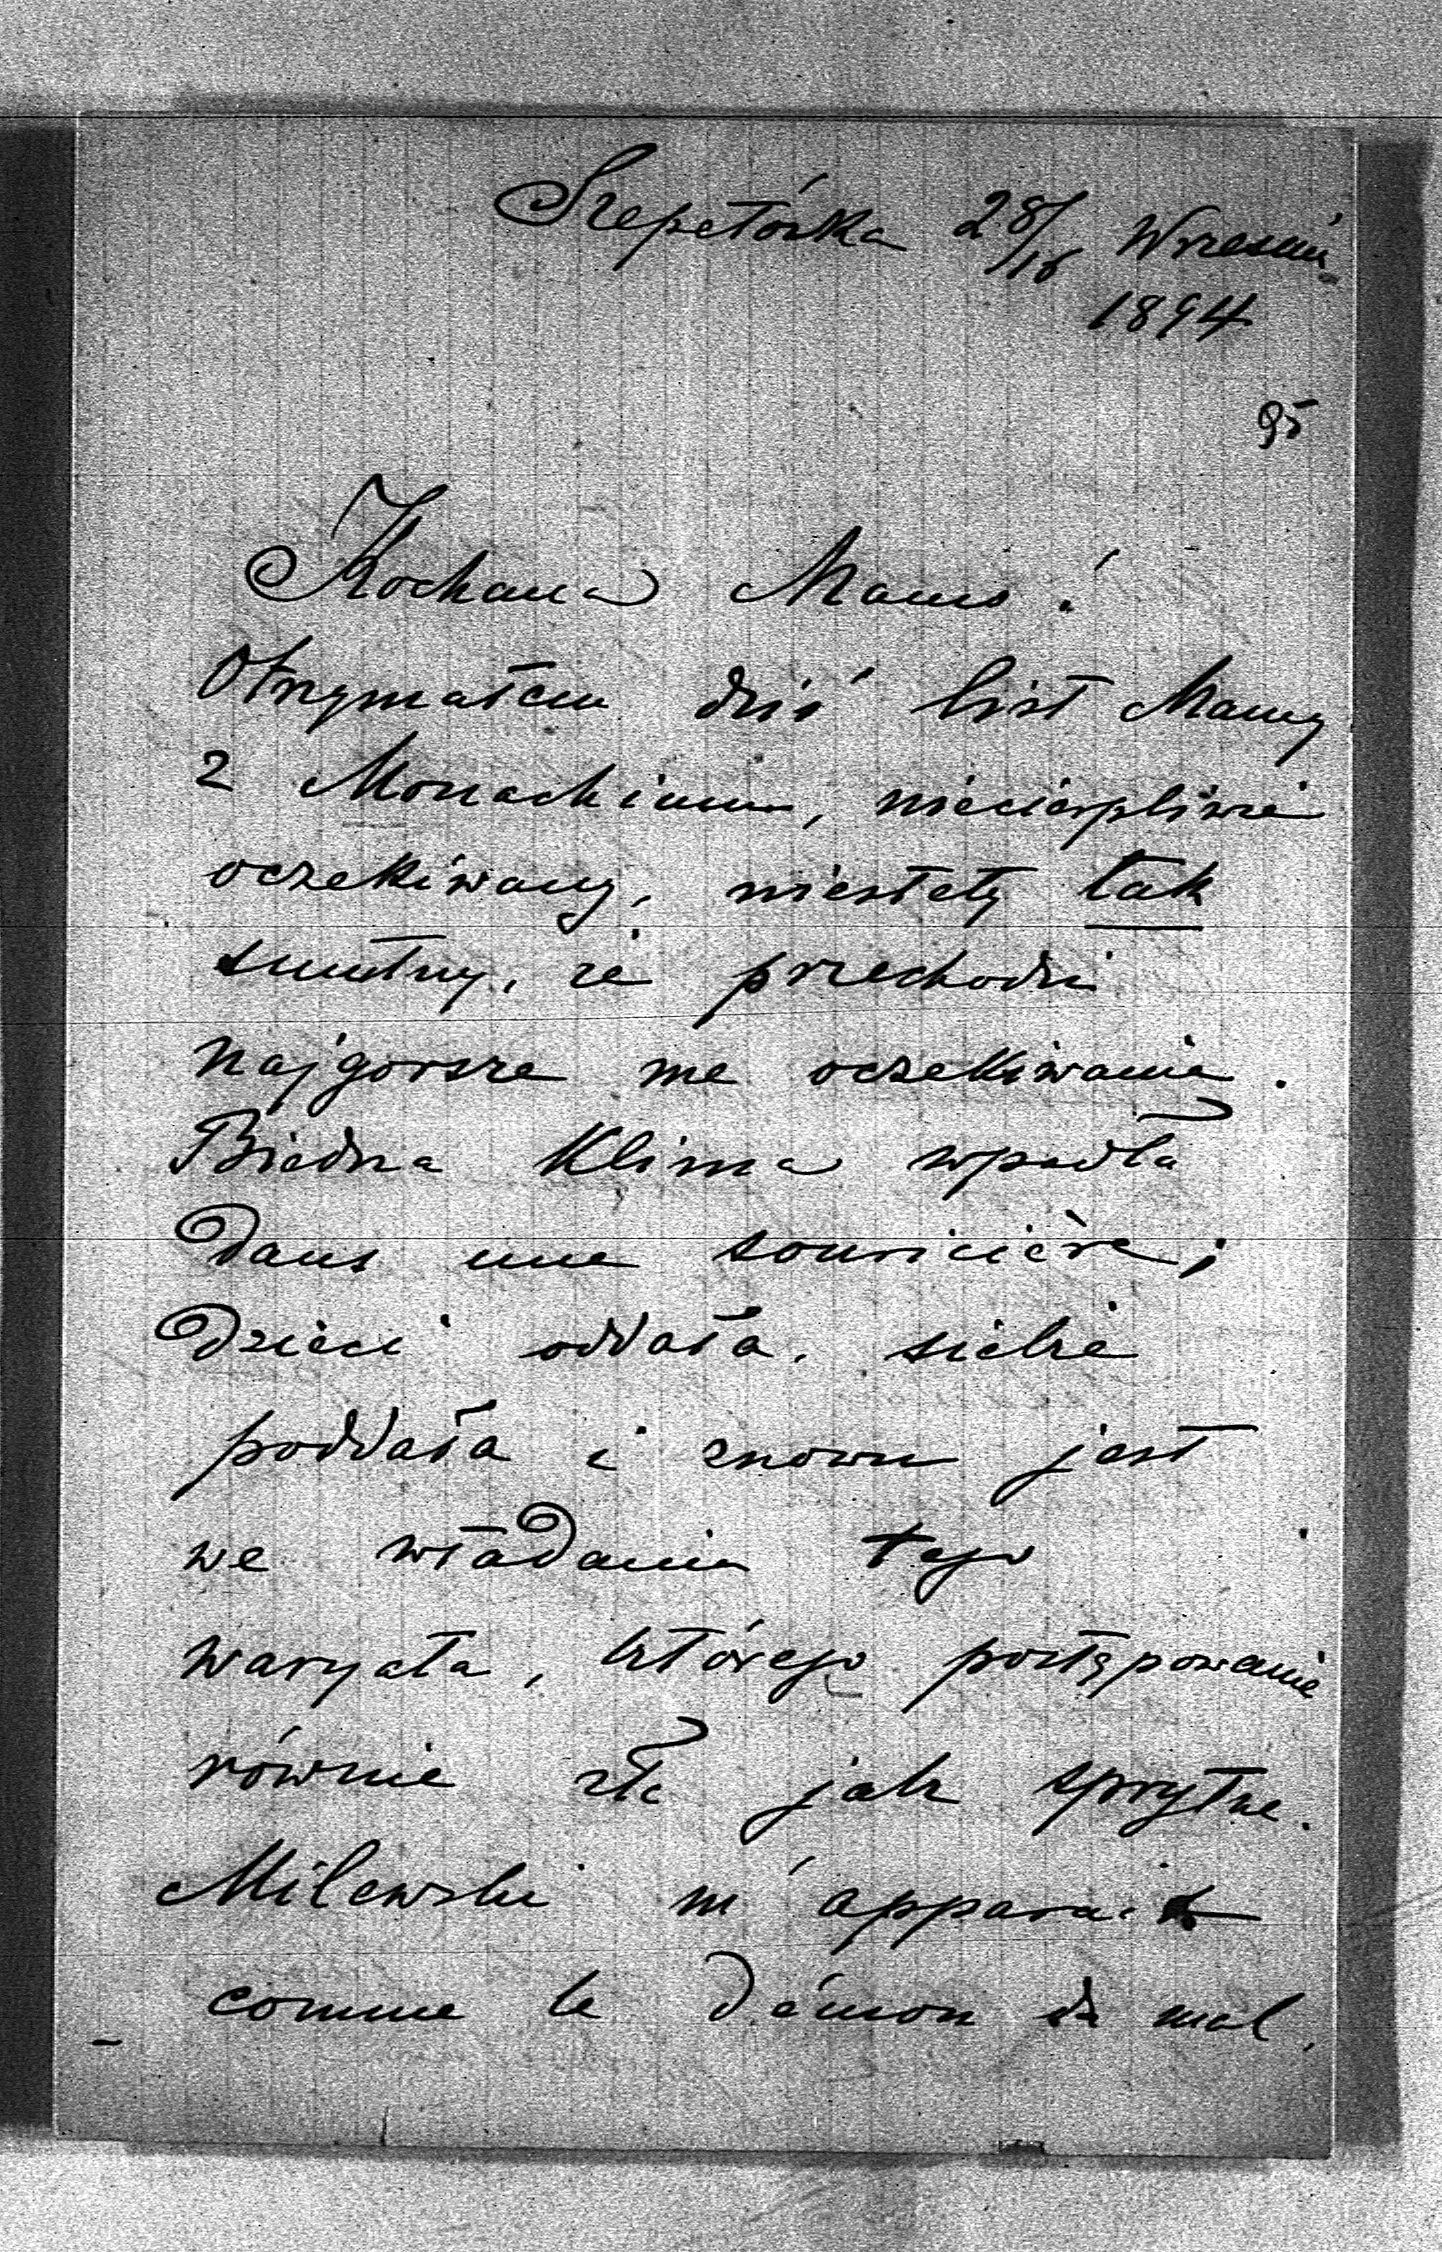 Szepetówka 28/16 Wrzesień
1894
95
Kochana Mamo!
Otrzymałem dziś list Mamy
z Monachium, niecierpliwie
oczekiwany, niestety tak
smutny, że przechodzi
najgorsze me oczekiwania.
Biedna Klima wpadła
dans une souricière;
Dzieci oddała, siebie
poddała i znowu jest
we władaniu tego
waryata, którego postępowanie
równie złe jak sprytne.
Milewski m'apparait
comme le démon du mal,